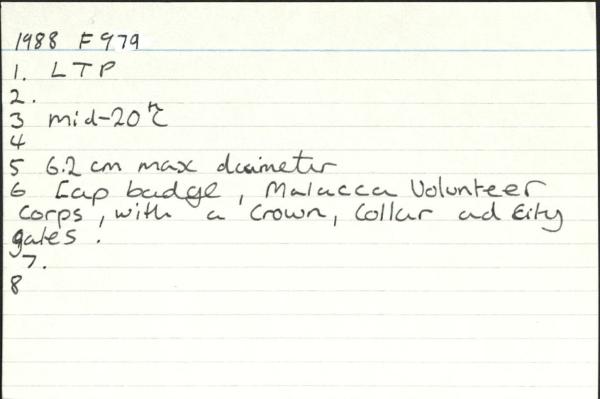 1988 F979
1. LTP
2.
3 mid-20th C
4
5 6.2 cm max daimeter
6 Cap badge, Malacca Volunteer
Corps, with a Crown, Collar ad City
gates.
7.
8